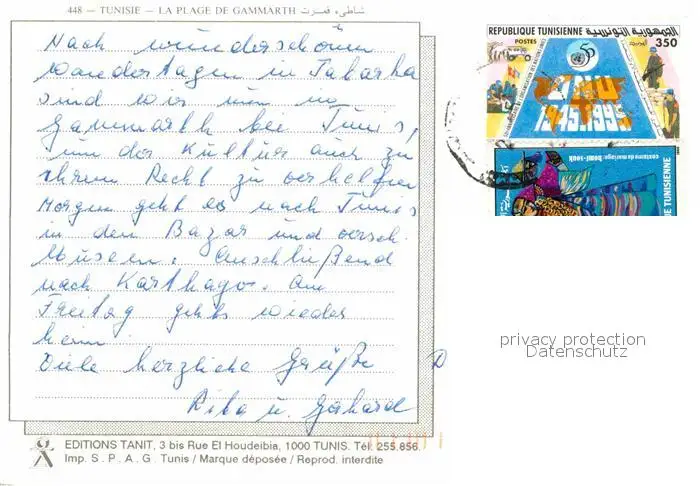 448 – TUNISIE – LA PLAGE DE GAMMARTH شاطىء قمرت
Nach wunderschönen
Wandertagen in Tabarka
sind wir nun in
Gammarth bei Tunis,
um der Kultur auch zu
ihrem Recht zu verhelfen
Morgen geht es nach Tunis
in den Bazar und versch.
Museen. Anschließend
nach Karthago. Am
Freitag gehts wieder
heim.
Viele herzliche Grüße
Rita u. Gerhard
EDITIONS TANIT, 3 bis Rue El Houdeibia, 1000 TUNIS. Tél. 255.856.
Imp. S.P.A.G. Tunis / Marque déposée / Reprod. interdite
REPUBLIQUE TUNISIENNE الجمهورية التونسية
POSTES 350
50
ONU
1945.1995
costume de mariage: homt-souk
E TUNISIENNE
privacy protection
Datenschutz